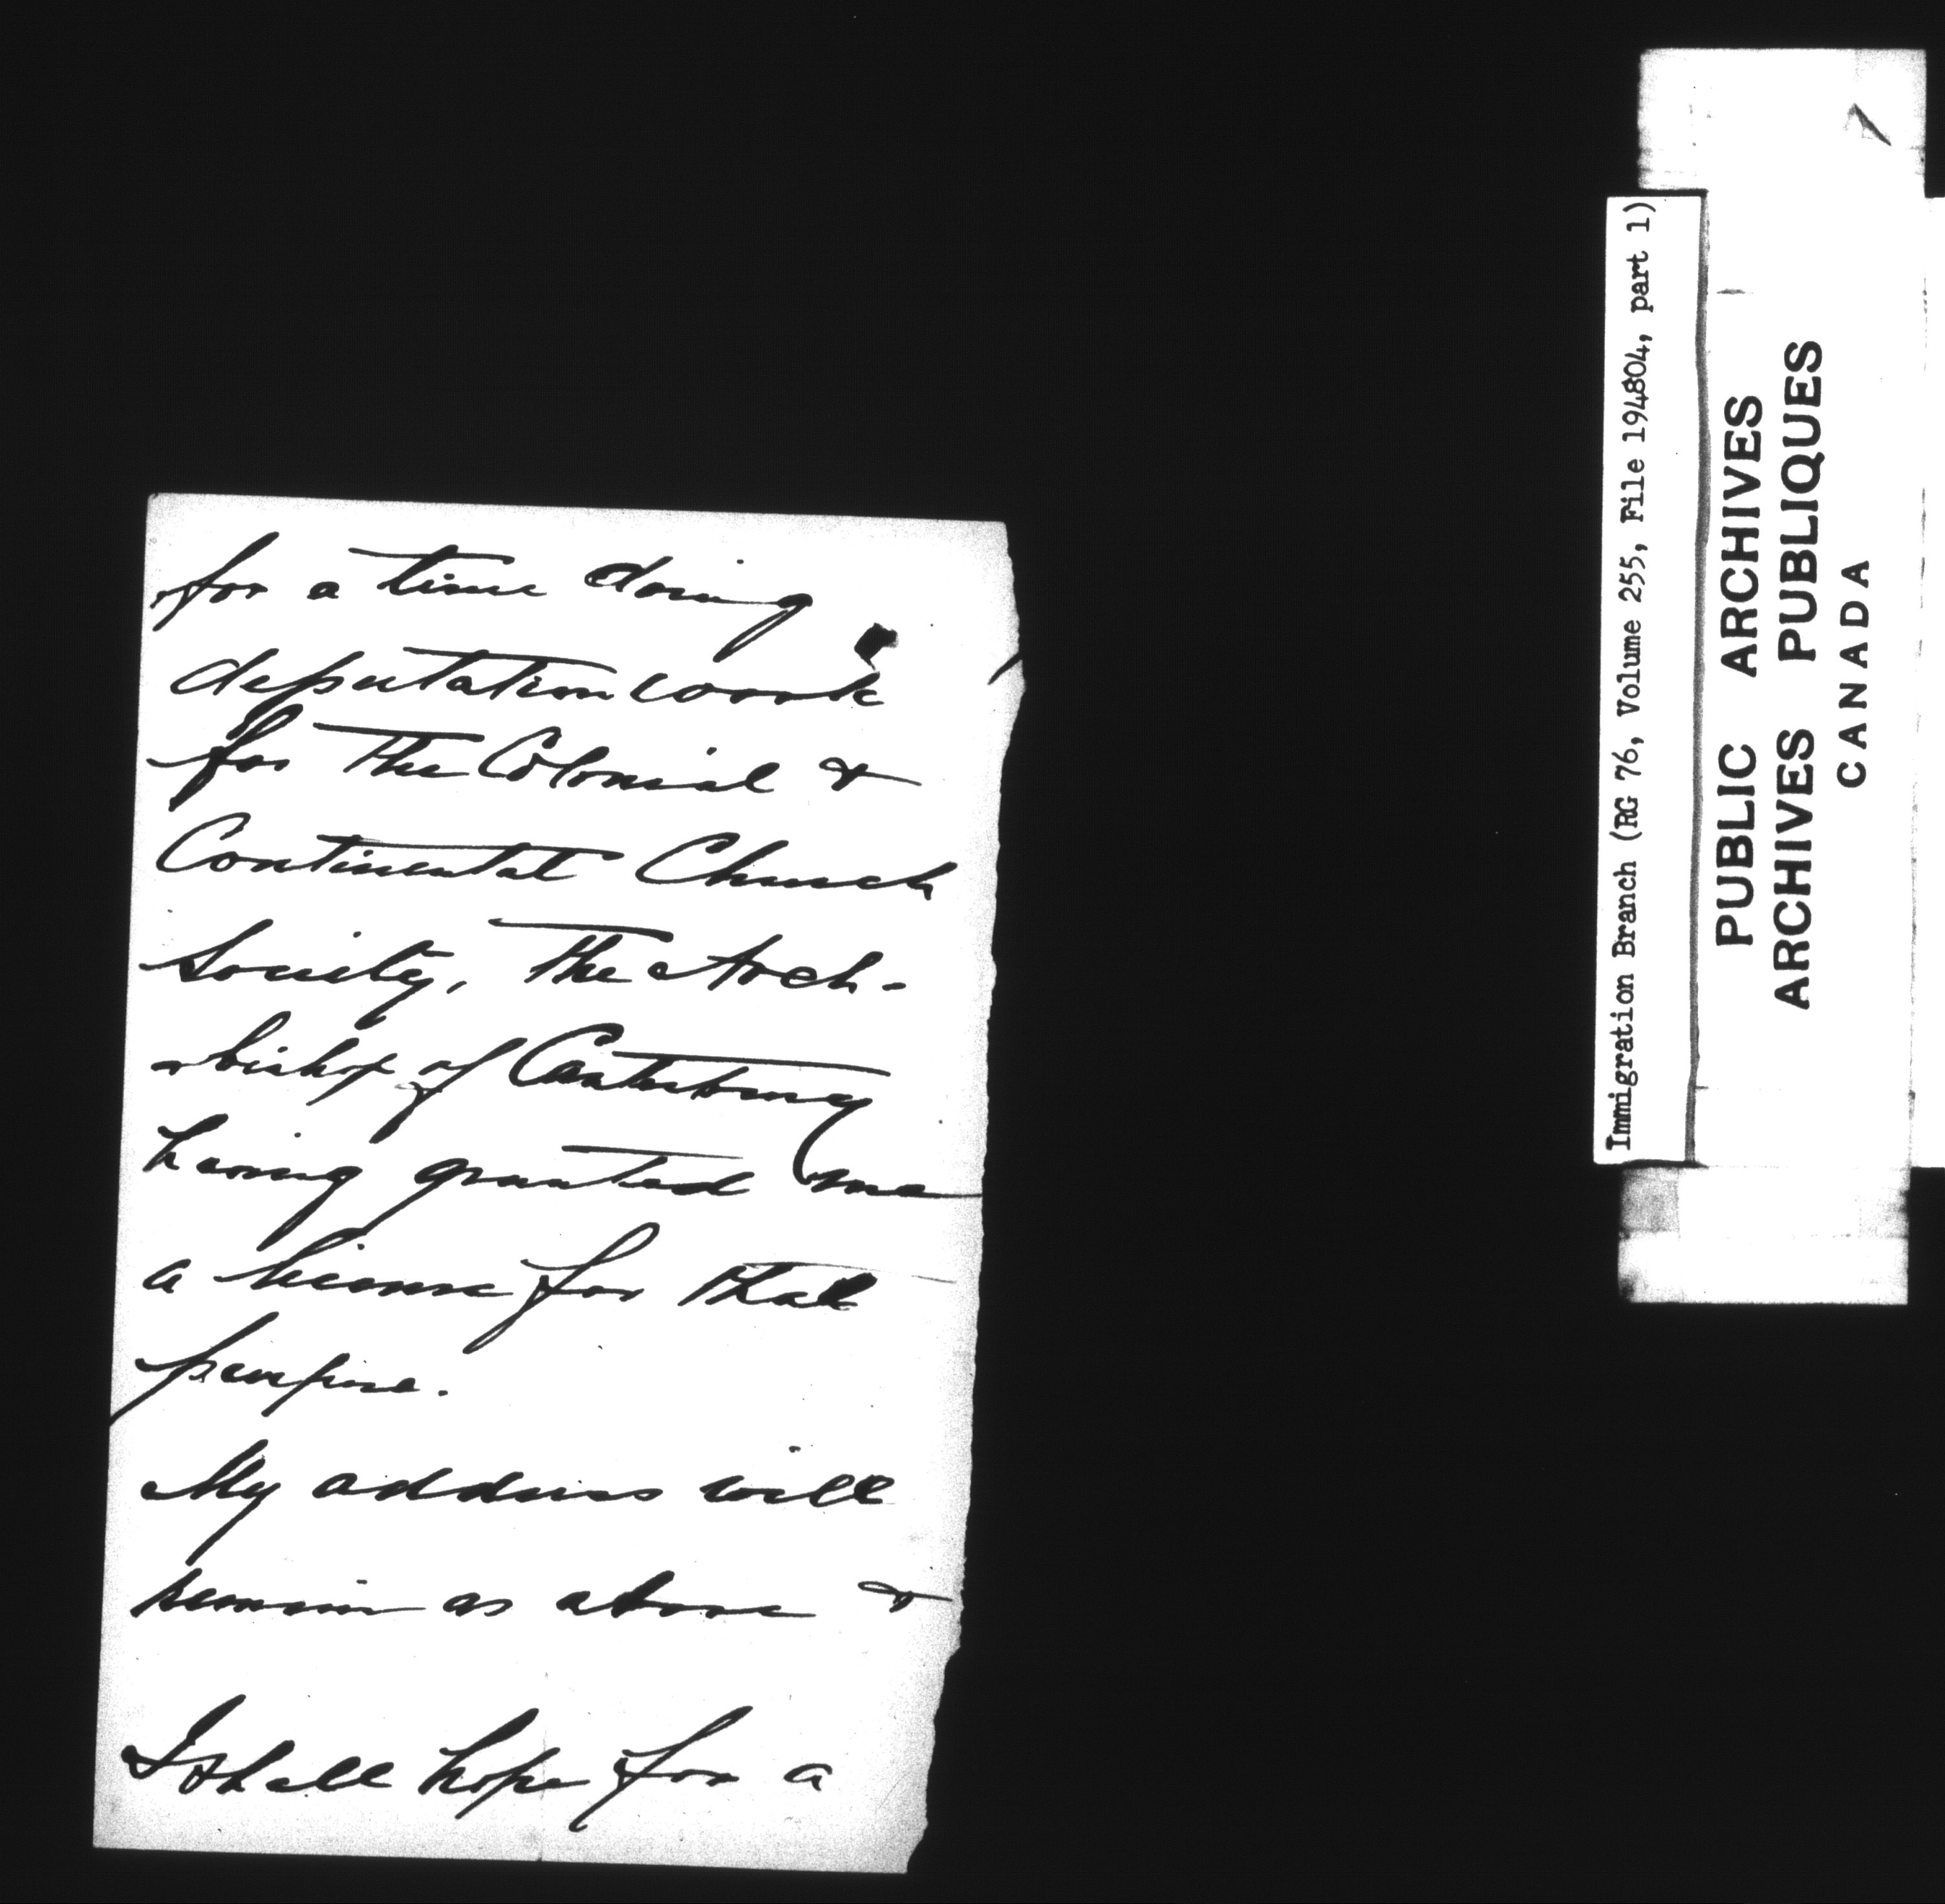 for a time doing
deputation work
for the Colonial &
Continental Church
Society, the Arch-
bishop of Canterbury
having granted me
a license for that
purpose.
My address will
remain as above &
I shall hope for a
Immigration Branch (RG 76, Volume 255, File 194804, part 1)
PUBLIC ARCHIVES
ARCHIVES PUBLIQUES
CANADA